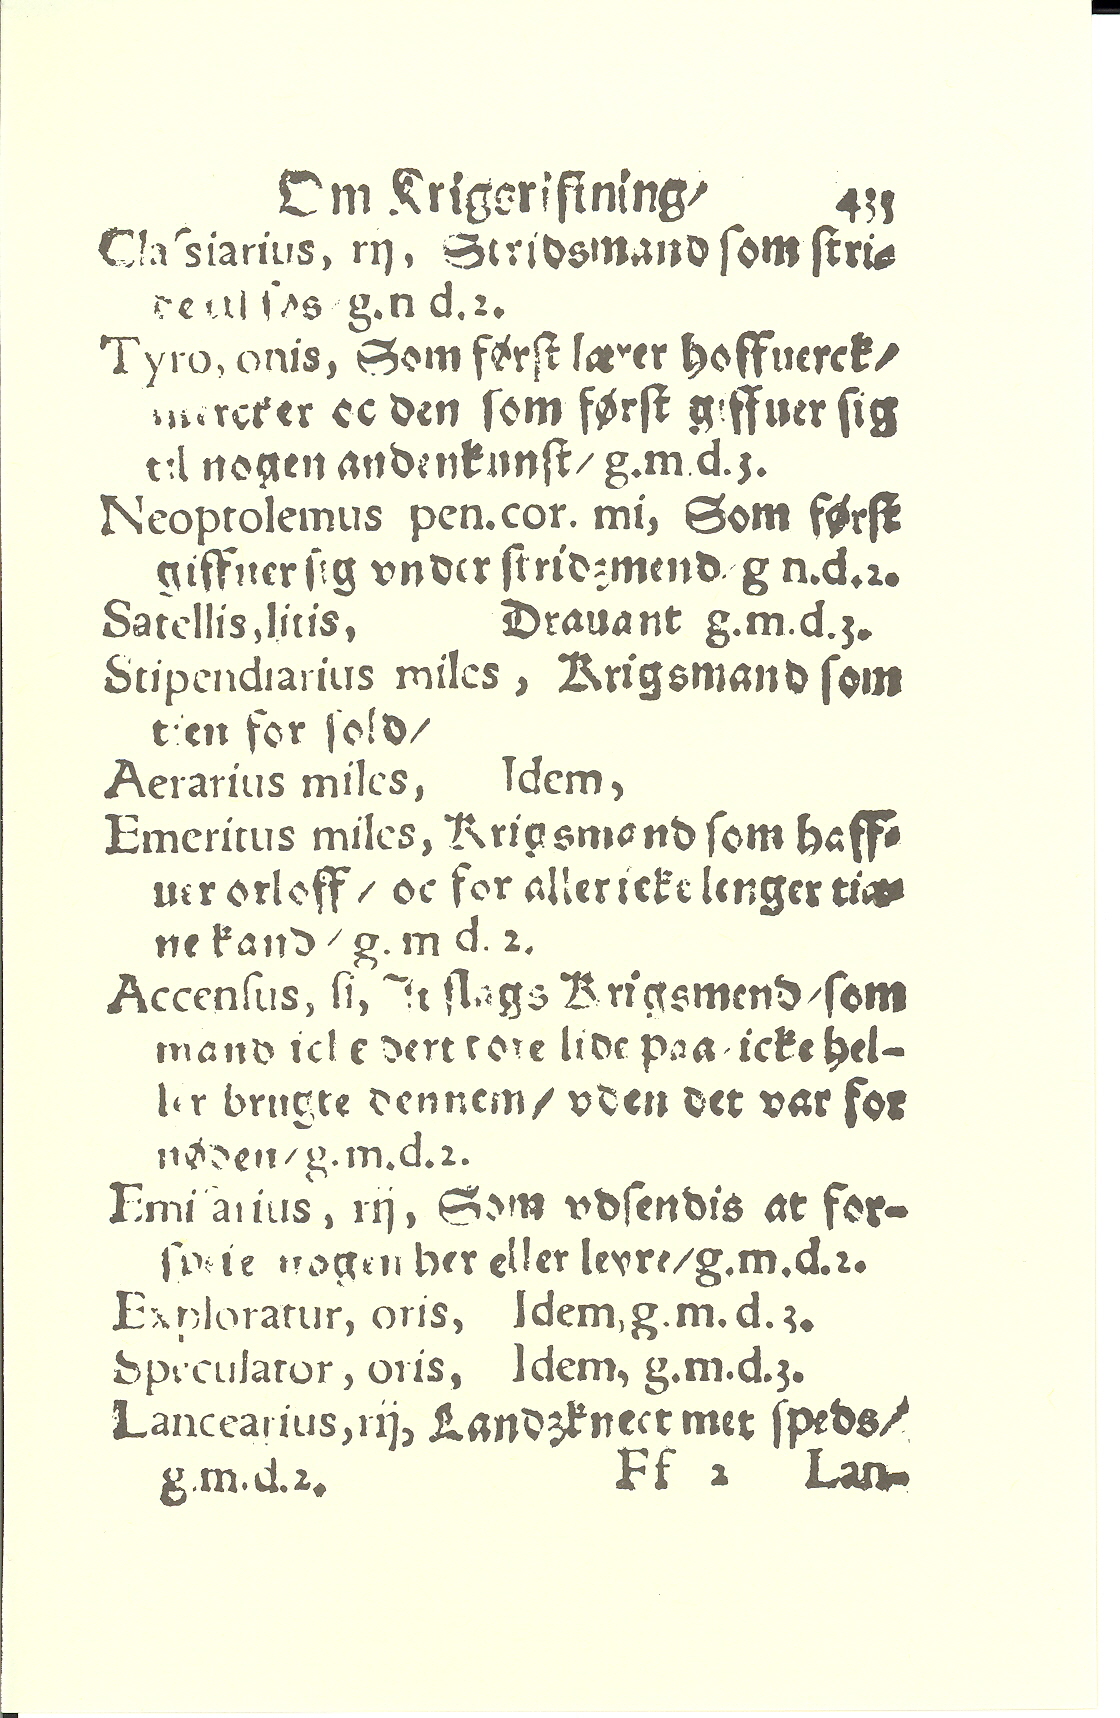 Om Krigsristning/ 433
Classiarius, rij, Stridsmand som stri-
til g.n d.2.
Tyro, onis, Som først lærer hoffuerck/
mercker oc den som først giffuer sig
til nogen andenkunst/ g.m.d.3.
Neoptolemus pen.cor. mi, Som først
giffuer sig vnder stridzmend/ g n.d.2.
Satellis,litis, Drauant g.m.d.3.
Stipendiarius miles, Krigsmand som
tien for sold/
Aerarius miles, Idem,
Emeritus miles, Krigsmand som haff-
uer orloff / oc for aller icke lenger tiæ-
ne kand/ g. m d. 2.
Accensus, si, slags Krigsmend/som
mand icke dert tore lide paa/icke hel-
ler brugte dennem/ vden det var for
nøden/g.m.d.2.
Emissarius, rij, Som vdsendis at for-
speie nogen her eller leyre/g.m.d.2.
Exploratur, oris, Idem,g.m.d.3.
Speculator, oris, Idem, g.m.d.3.
Lancearius,rij, Landzknect met speds/
g.m.d.2. Ff 2 Lan-